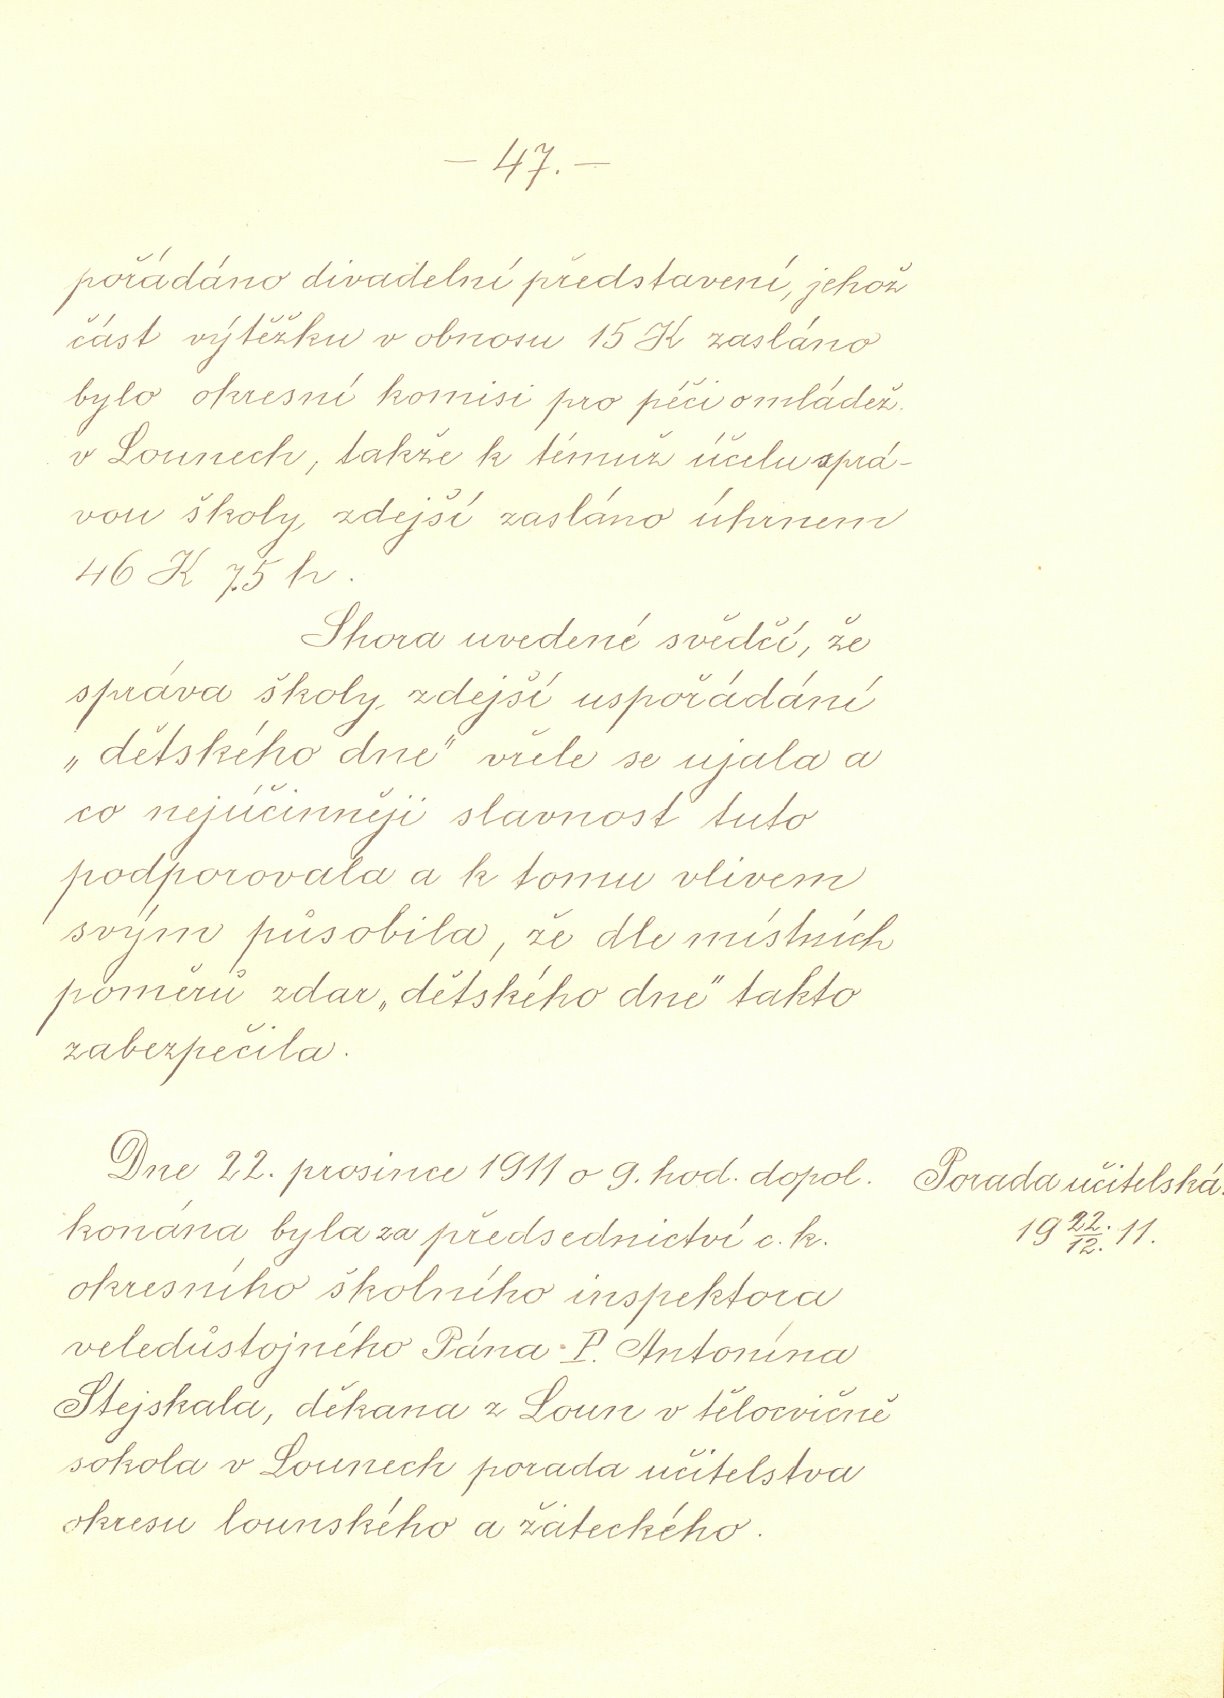 — 47. —
pořádáno divadelní představení, jehož
část výtěžku v obnosu 15 K zasláno
bylo okresní komisi pro péči o mládež.
v Lounech, takže k témuž účelu sprá-
vou školy zdejší zasláno úhrnem
46 K 75 h.
Shora uvedené svědčí, že
správa školy zdejší uspořádání
„dětského dne" vřele se ujala a
co nejúčinněji slavnost tuto
podporovala a k tomu vlivem
svým působila, že dle místních
poměrů zdar „dětského dne" takto
zabezpečila.
Dne 22. prosince 1911 o 9. hod. dopol.
Porada učitelská.
19 22./12. 11.
konána byla za předsednictví c. k.
okresního školního inspektora
veledůstojného Pána P. Antonína
Stejskala, děkana z Loun v tělocvičně
sokola v Lounech porada učitelstva
okresu lounského a žateckého.